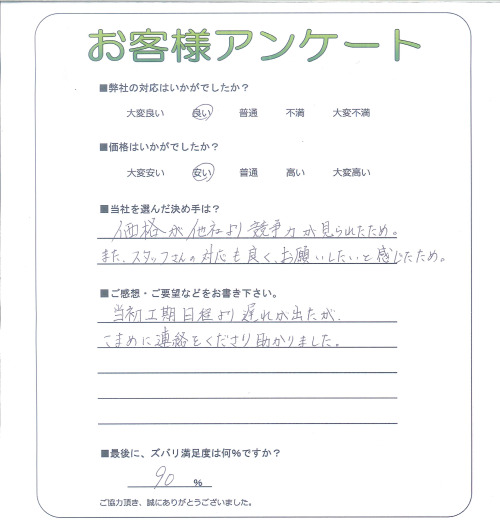 お客様アンケート
■弊社の対応はいかがでしたか？
大変良い 良い 普通 不満 大変不満
■価格はいかがでしたか？
大変安い 安い 普通 高い 大変高い
■当社を選んだ決め手は？
価格が他社より競争力が見られたため。
また、スタッフさんの対応も良く、お願いしたいと感じたため。
■ご感想・ご要望などをお書き下さい。
当初工期日程より遅れが出たが、
こまめに連絡をくださり助かりました。
■最後に、ズバリ満足度は何％ですか？
90 ％
ご協力頂き、誠にありがとうございました。